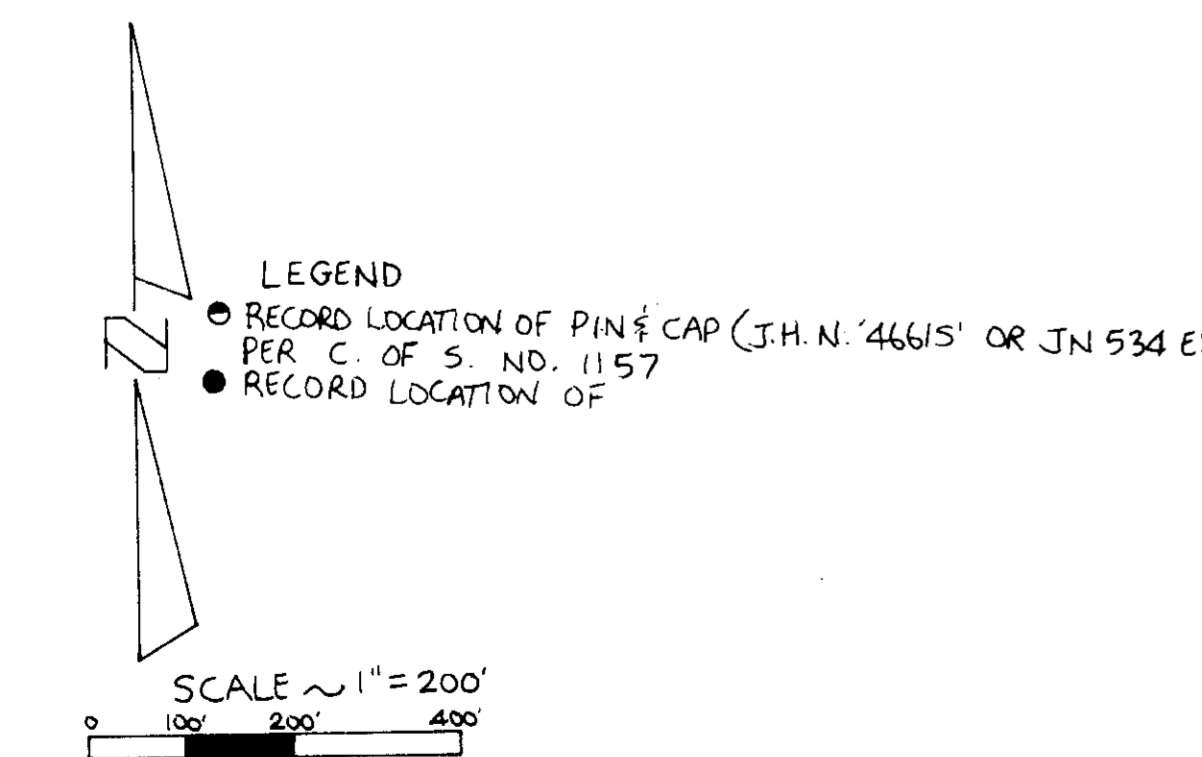 LEGEND
RECORD LOCATION OF PIN & CAP (J.H.N. '4661S' OR JN 534 ES
PER C. OF S. NO. 1157
RECORD LOCATION OF
N
SCALE ~ 1" = 200'
0 100' 200' 400'